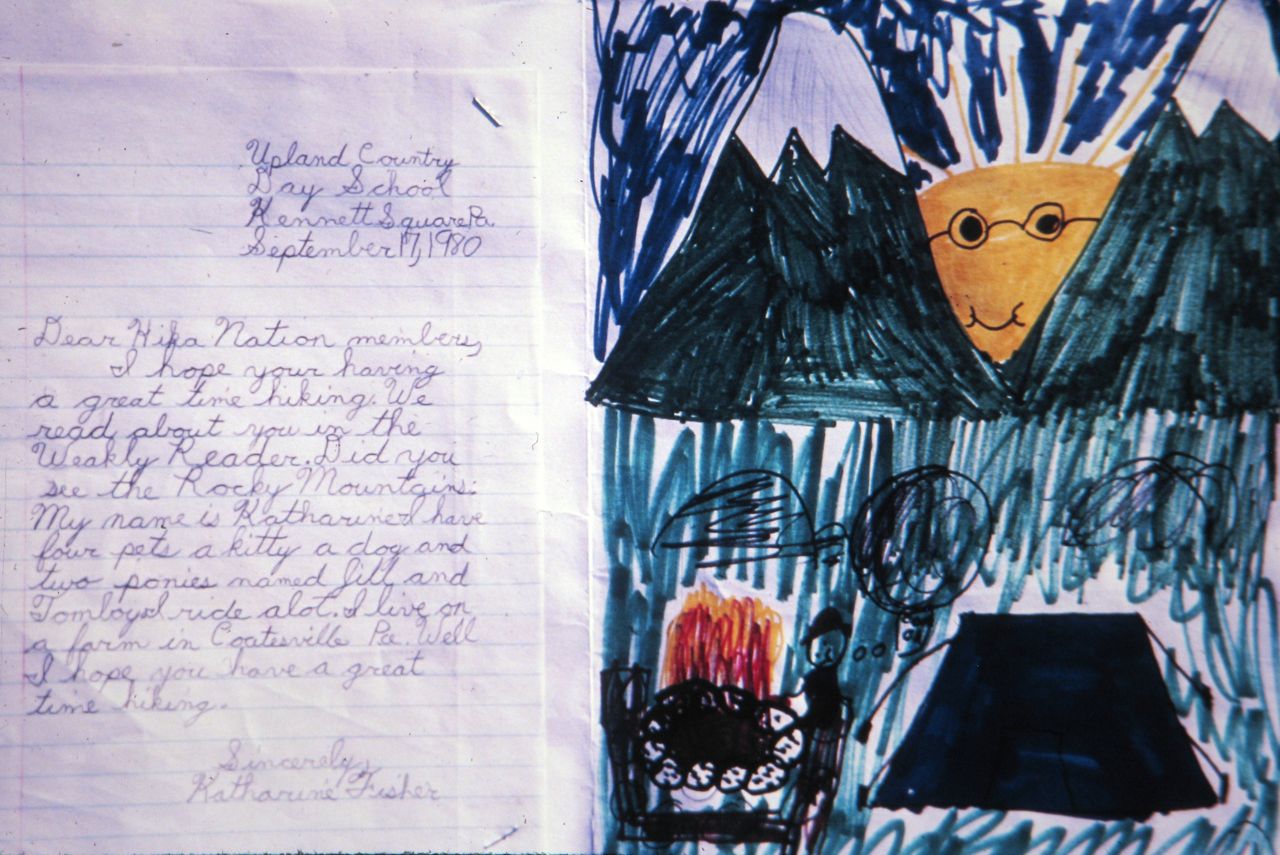 Upland Country
Day School
Kennett Square Pa.
September 17, 1980
Dear Hika Nation members,
I hope your having
a great time hiking. We
read about you in the
Weakly Reader. Did you
see the Rocky Mountains.
My name is Katharine I have
four pets a kitty a dog and
two ponies named Jill and
Tomboy I ride alot. I live on
a farm in Coatesville Pa. Well
I hope you have a great
time hiking.
Sincerely,
Katharine Fisher